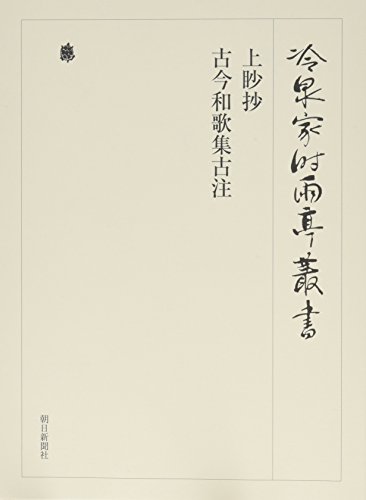 冷泉家時雨亭叢書
上眇抄
古今和歌集古注
朝日新聞社